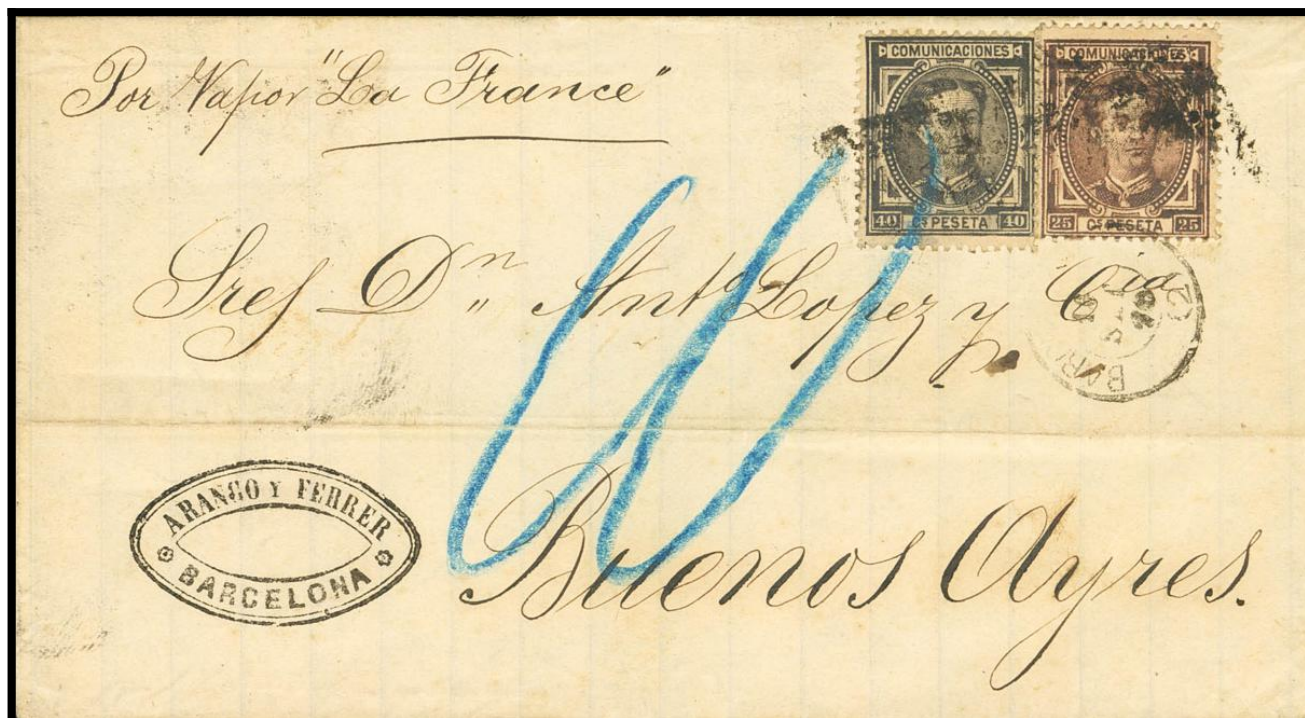 Por Vapor "La France"
COMUNICACIONES
40 Cs PESETA 40
COMUNICACIONES
25 Cs PESETA 25
Sres Dn Ant Lopez y Cia
BAR
ARANGO Y FERRER
BARCELONA
Buenos Ayres.